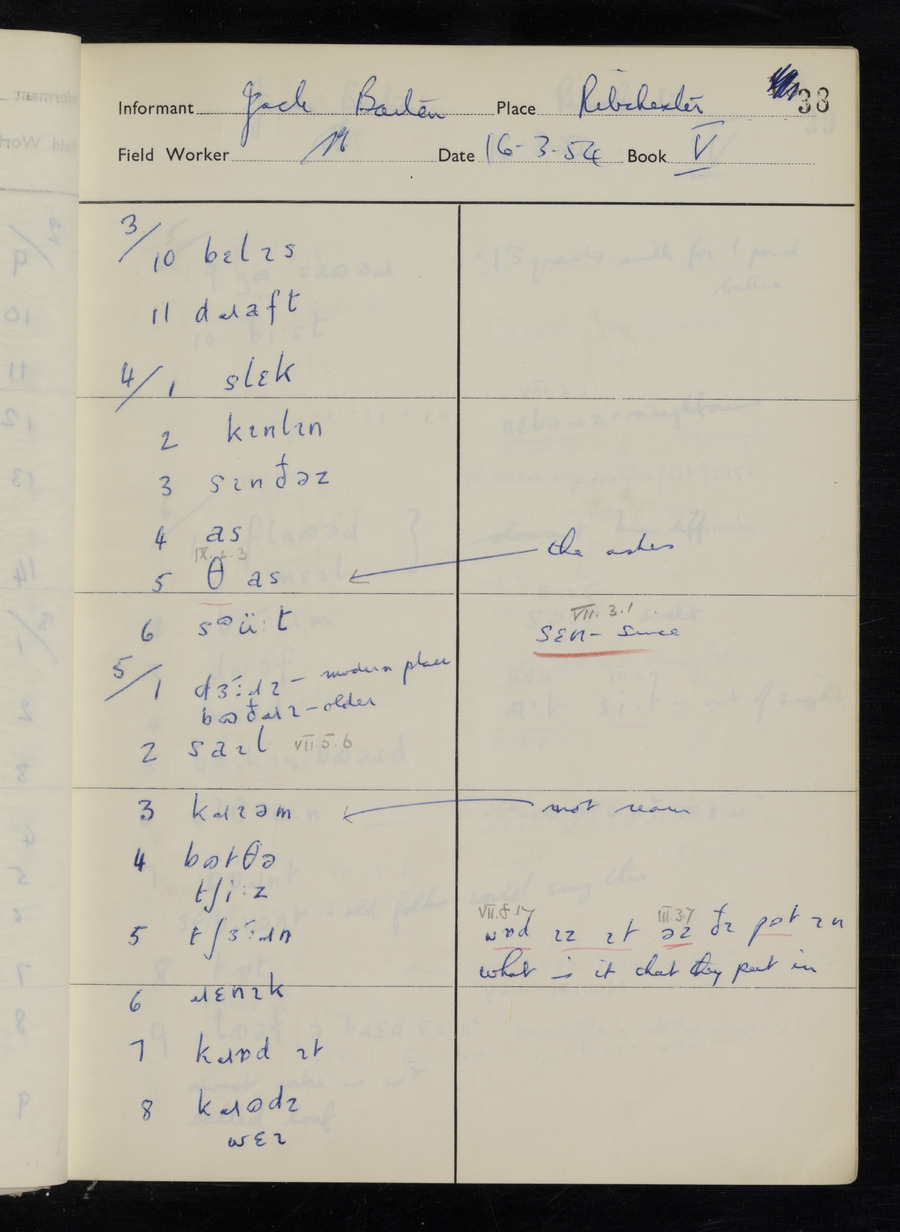 33
Informant Jack Place Ribchester
Field Worker Date 16-3-54 Book V
3/10 bɛlɪs
11 dɹaft
4/1 slɛk
2 kɪnlɪn
3 sɪnđəz
4 as
IX.2.3
5 θ as the ashes
6 sᵊü:t
VII.3.1
sɛn - since
5/1 dɜ:ɹɪ - modern place
- older
2 saɪl VII.5.6
3 kɹɪəm not ream
4
tʃi:z
5 tʃɜ:ɹn
VII.8.17 III.3.7
wɒd ɪz ɪt əz đɪ pɷt ɪn
what is it that they put in
6 ɹɛnɪk
7 kɹɒd ɪt
8 kɹɷdz
wɛɪ